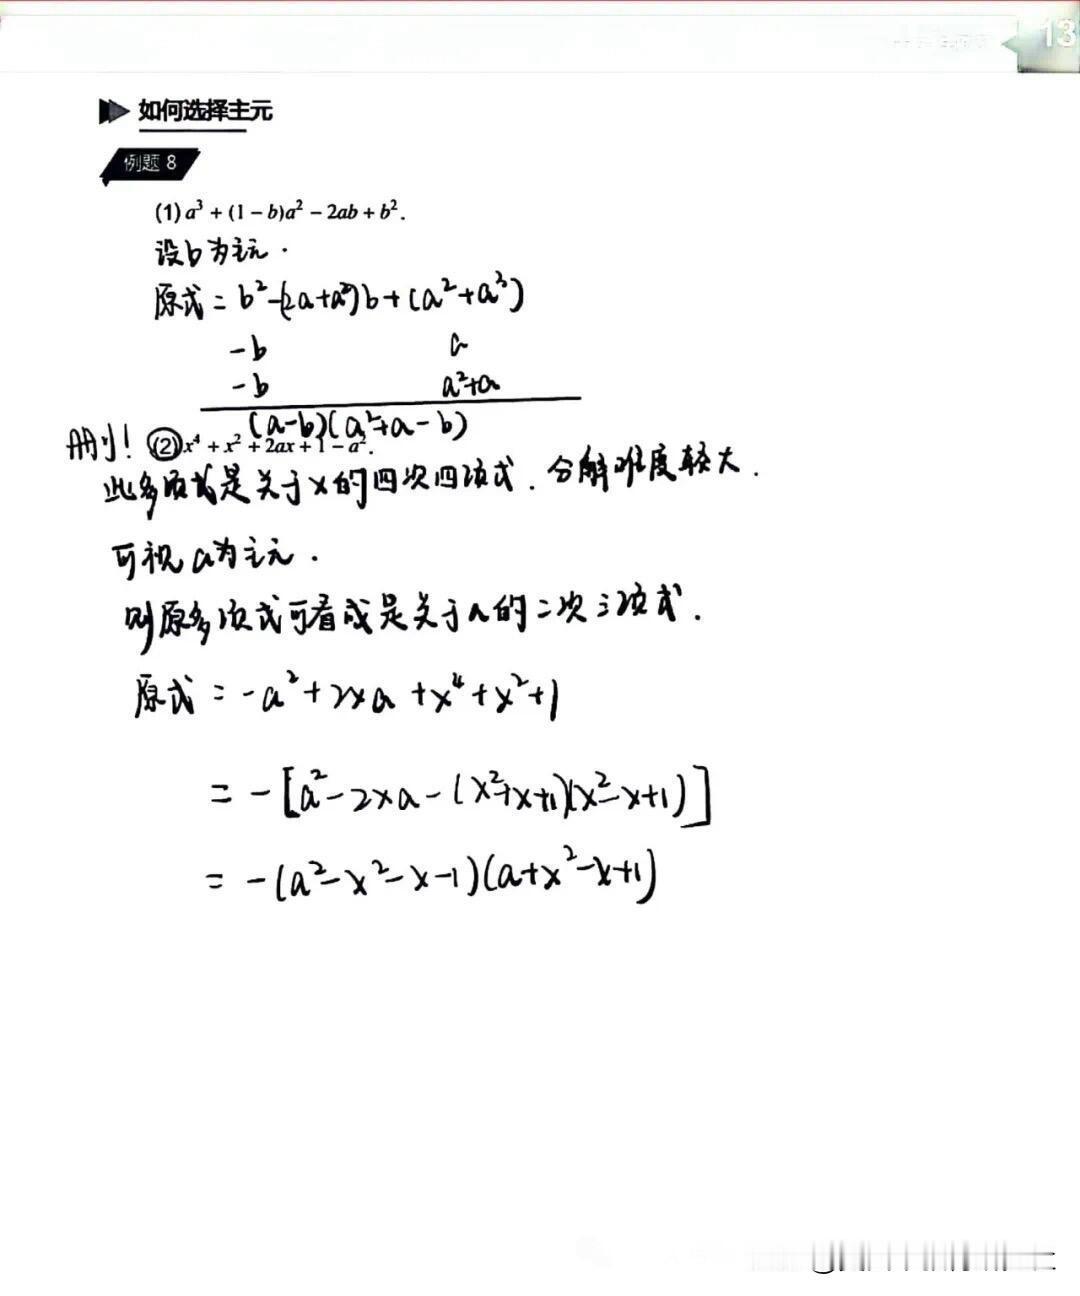 13
如何选择主元
例题 8
(1) a³ + (1 − b)a² − 2ab + b².
设b为主元.
原式 = b²-(2a+a²)b+(a²+a³)
-b a
-b a²+a
(a-b)(a²+a-b)
(2) x⁴ + x² + 2ax + 1 − a².
此多项式是关于x的四次四项式. 分解难度较大.
可视a为主元.
则原多项式可看成是关于a的二次三项式.
原式 = -a²+2xa+x⁴+x²+1
= -[a²-2xa-(x²+x+1)(x²-x+1)]
= -(a²-x²-x-1)(a+x²-x+1)